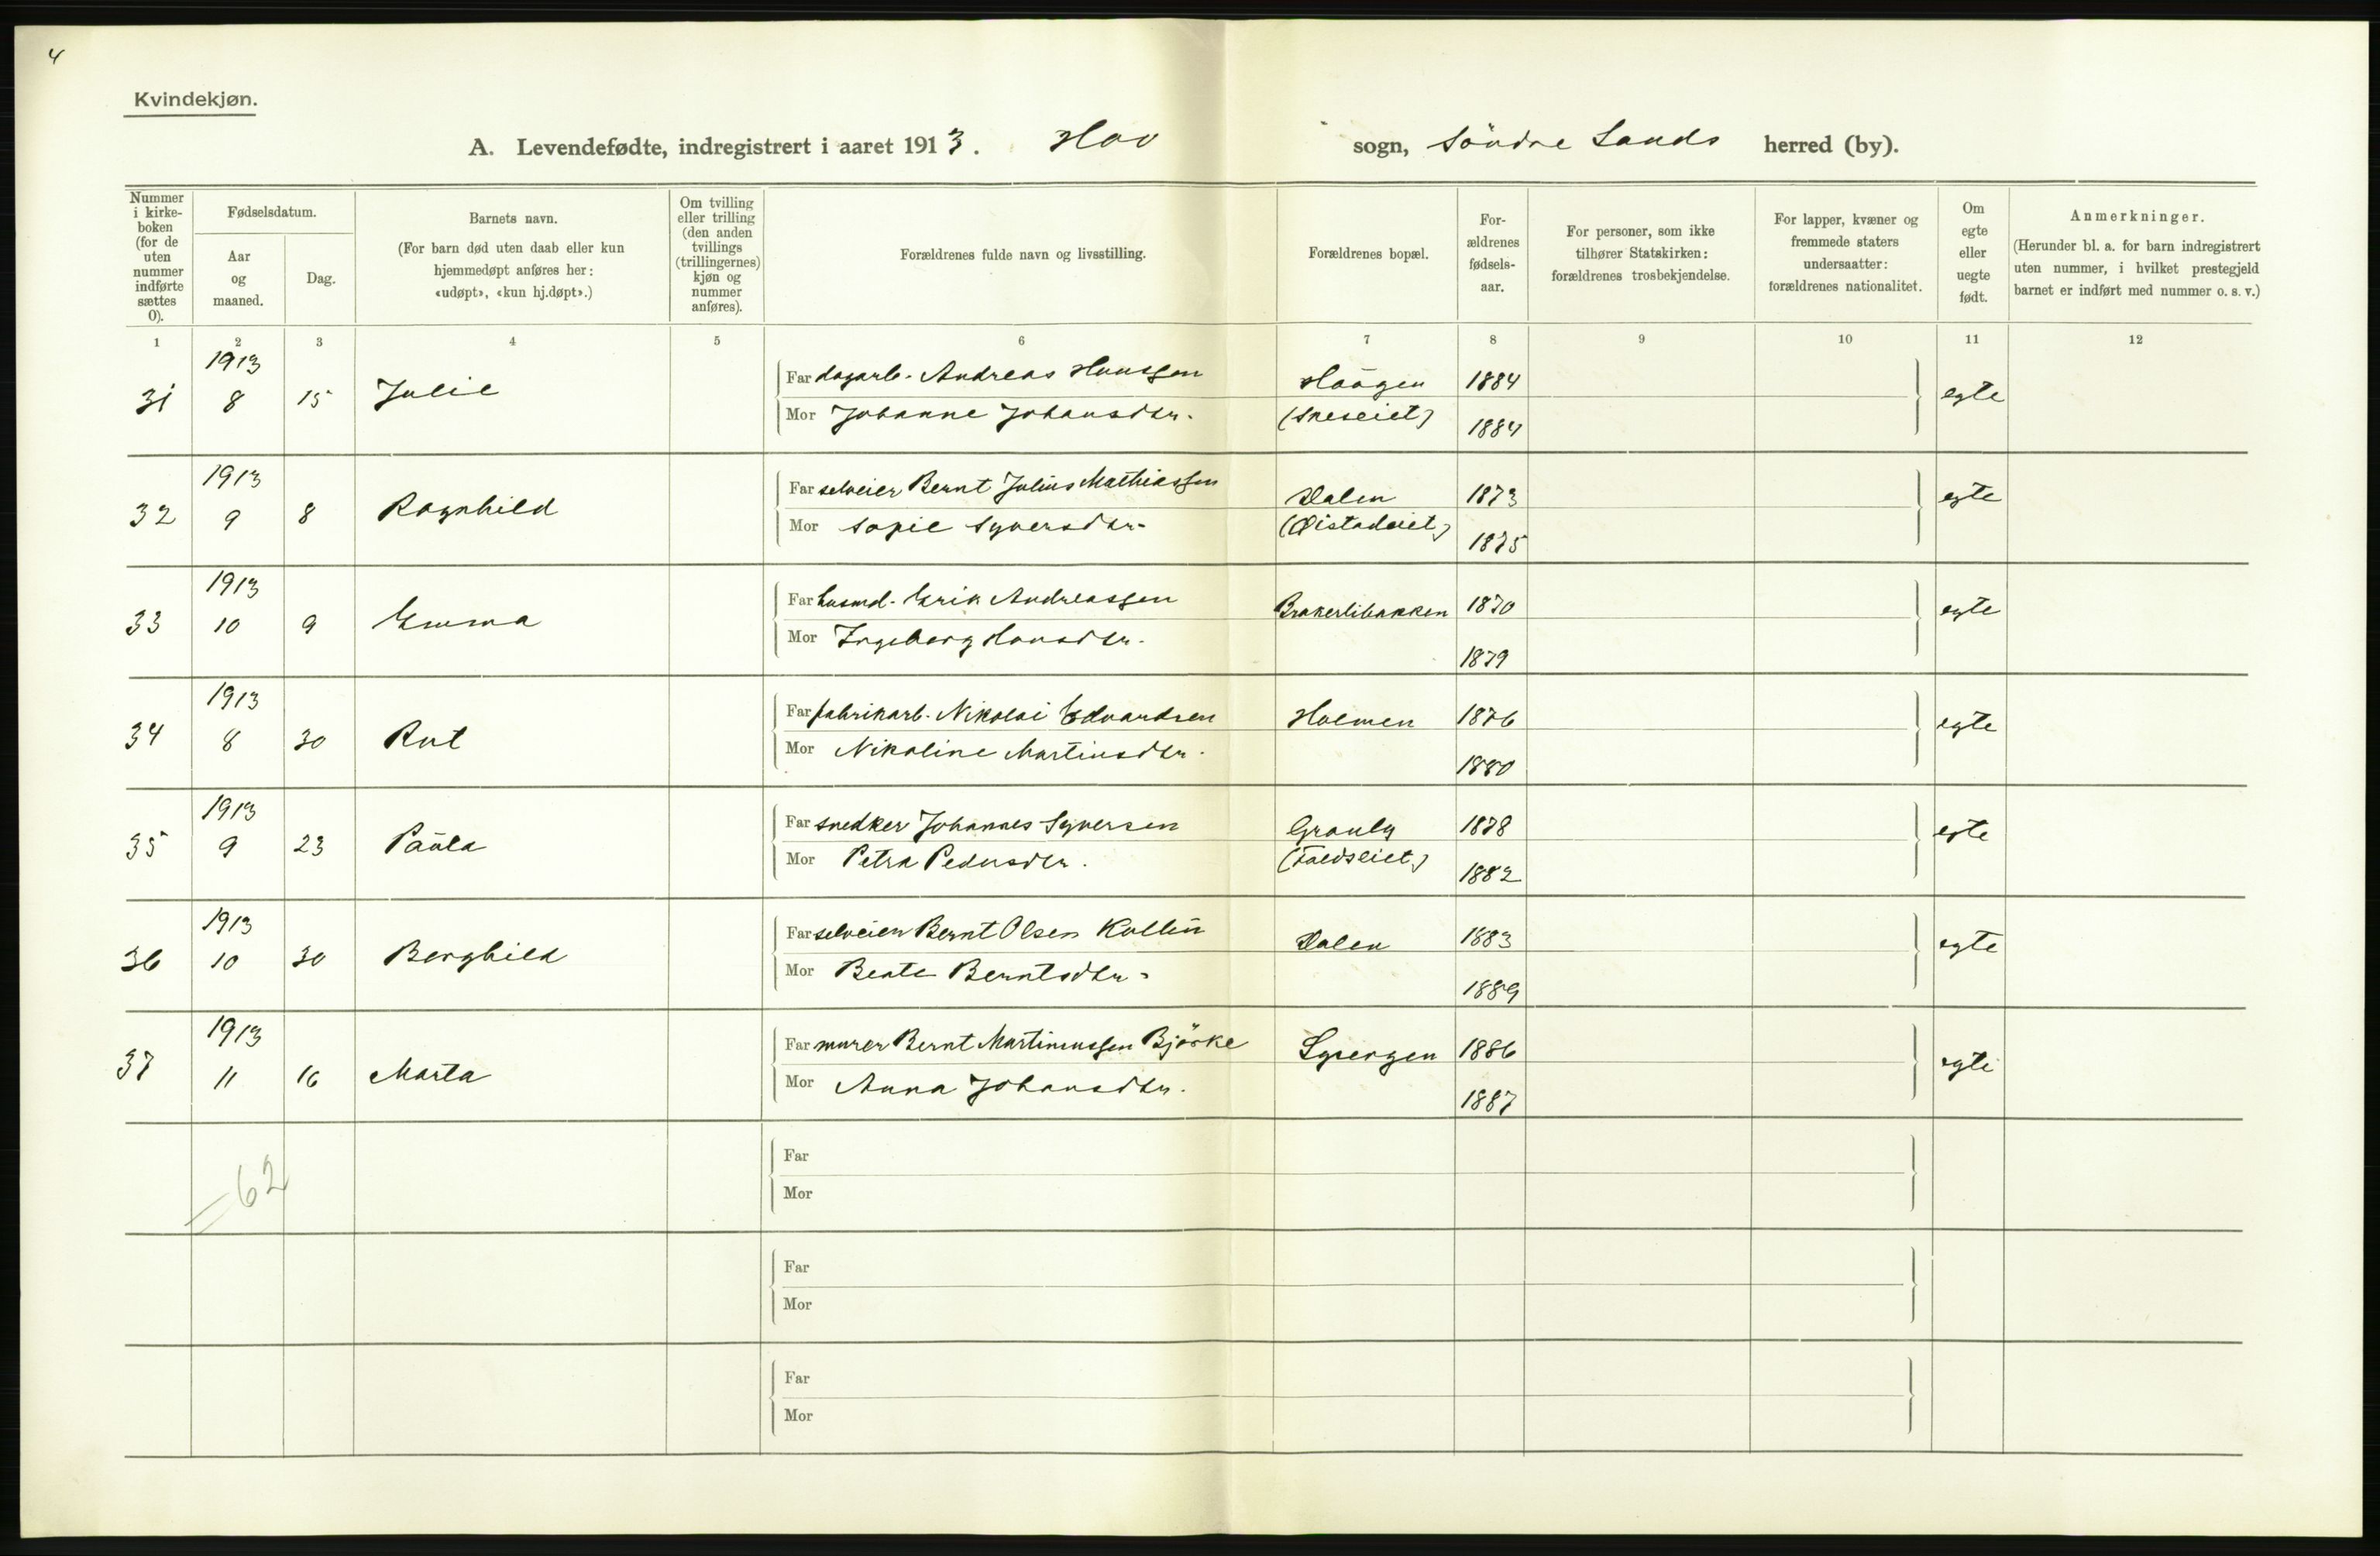 4
Kvindekjøn.
A. Levendefødte, indregistrert i aaret 1913. Hov sogn, Söndre Lands herred (by).
Nummer i kirkeboken (for de uten nummer indførte sættes 0).
Fødselsdatum.
Aar og maaned.
Dag.
Barnets navn.
(For barn død uten daab eller kun hjemmedøpt anføres her: «udøpt», «kun hj.døpt».)
Om tvilling eller trilling (den anden tvillings (trillingernes) kjøn og nummer anføres).
Forældrenes fulde navn og livsstilling.
Forældrenes bopæl.
Forældrenes fødselsaar.
For personer, som ikke tilhører Statskirken: forældrenes trosbekjendelse.
For lapper, kvæner og fremmede staters undersaatter: forældrenes nationalitet.
Om egte eller uegte født.
Anmerkninger.
(Herunder bl. a. for barn indregistrert uten nummer, i hvilket prestegjeld barnet er indført med nummer o. s. v.)
1 2 3 4 5 6 7 8 9 10 11 12
1913
31 8 15 Julie
Far dagarb. Andreas Hanssen Haagen 1884 egte
Mor Johanne Johansdtr. 1884
1913
32 9 8 Ragnhild
Far selveier Bernt Julius Mathiassen Dalen 1873 egte
Mor Sofie Syversdtr. 1875
1913
33 10 9 Emma
Far husmd. Erik Andreassen Brakerlibakken 1870 egte
Mor Ingeborg Hansdtr. 1879
1913
34 8 30 Rut
Far fabrikarb. Nikolai Edvardsen Holmen 1876 egte
Mor Nikoline Martinsdtr. 1880
1913
35 9 23 Paula
Far snedker Johannes Syversen Granly 1878 egte
Mor Petra Pedersdtr. 1882
1913
36 10 30 Borghild
Far selveier Bernt Olsen Kollin Dalen 1883 egte
Mor Beate Berntsdtr. 1889
1913
37 11 16 Marta
Far murer Bernt Martinussen Björke 1886 egte
Mor Anna Johansdtr. 1887
62
Far
Mor
Far
Mor
Far
Mor